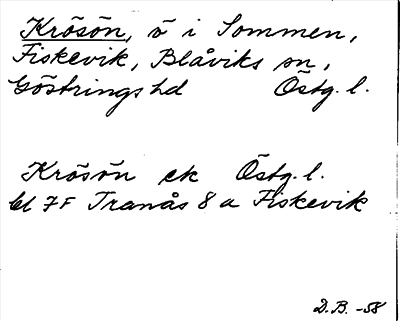 Krösön, ö i Sommen,
Fiskevik, Blåviks sn,
Göstrings hd Östg. l.
Krösön ek Östg. l.
bl 7F Tranås 8 a Fiskevik
D.B. -58